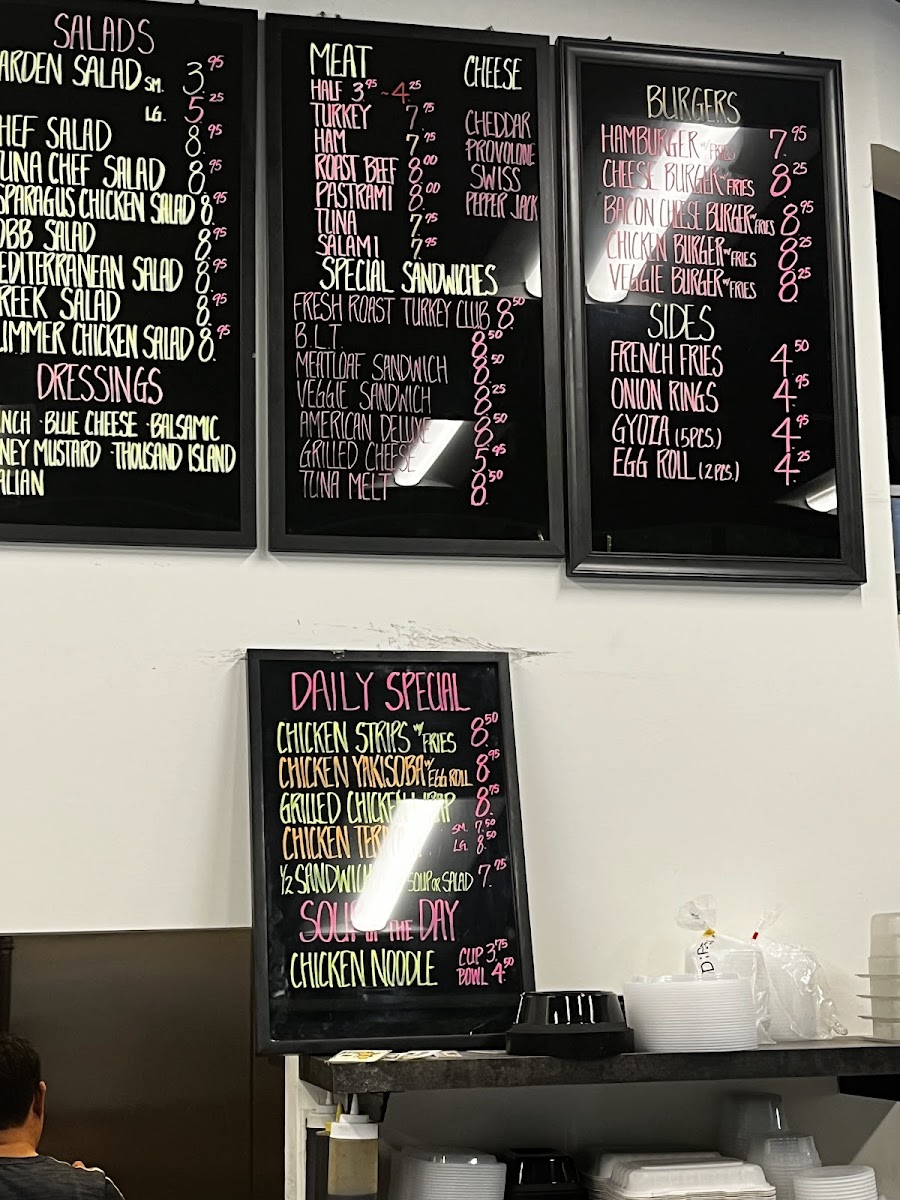 SALADS
ARDEN SALAD SM. 3.95
LG. 5.25
HEF SALAD 8.95
UNA CHEF SALAD 8.95
SPARAGUS CHICKEN SALAD 8.95
OBB SALAD 8.95
EDITERRANEAN SALAD 8.95
REEK SALAD 8.95
UMMER CHICKEN SALAD 8.95
DRESSINGS
NCH · BLUE CHEESE · BALSAMIC
NEY MUSTARD · THOUSAND ISLAND
ALIAN
MEAT
HALF 3.95 ~ 4.25
TURKEY 7.75
HAM 7.75
ROAST BEEF 8.00
PASTRAMI 8.00
TUNA 7.75
SALAMI 7.95
CHEESE
CHEDDAR
PROVOLONE
SWISS
PEPPER JACK
SPECIAL SANDWICHES
FRESH ROAST TURKEY CLUB 8.50
B.L.T. 8.50
MEATLOAF SANDWICH 8.50
VEGGIE SANDWICH 8.25
AMERICAN DELUXE 8.50
GRILLED CHEESE 5.95
TUNA MELT 8.50
BURGERS
HAMBURGER W/ FRIES 7.95
CHEESE BURGER W/ FRIES 8.25
BACON CHEESE BURGER W/ FRIES 8.95
CHICKEN BURGER W/ FRIES 8.25
VEGGIE BURGER W/ FRIES 8.25
SIDES
FRENCH FRIES 4.50
ONION RINGS 4.95
GYOZA (5PCS.) 4.95
EGG ROLL (2PCS.) 4.25
DAILY SPECIAL
CHICKEN STRIPS W/ FRIES 8.50
CHICKEN YAKISOBA W/ EGG ROLL 8.95
GRILLED CHICKEN WRAP 8.75
CHICKEN SM. 7.50
LG. 8.50
1/2 SANDWICH SOUP OR SALAD 7.75
SOUP OF THE DAY
CHICKEN NOODLE CUP 3.75
BOWL 4.50